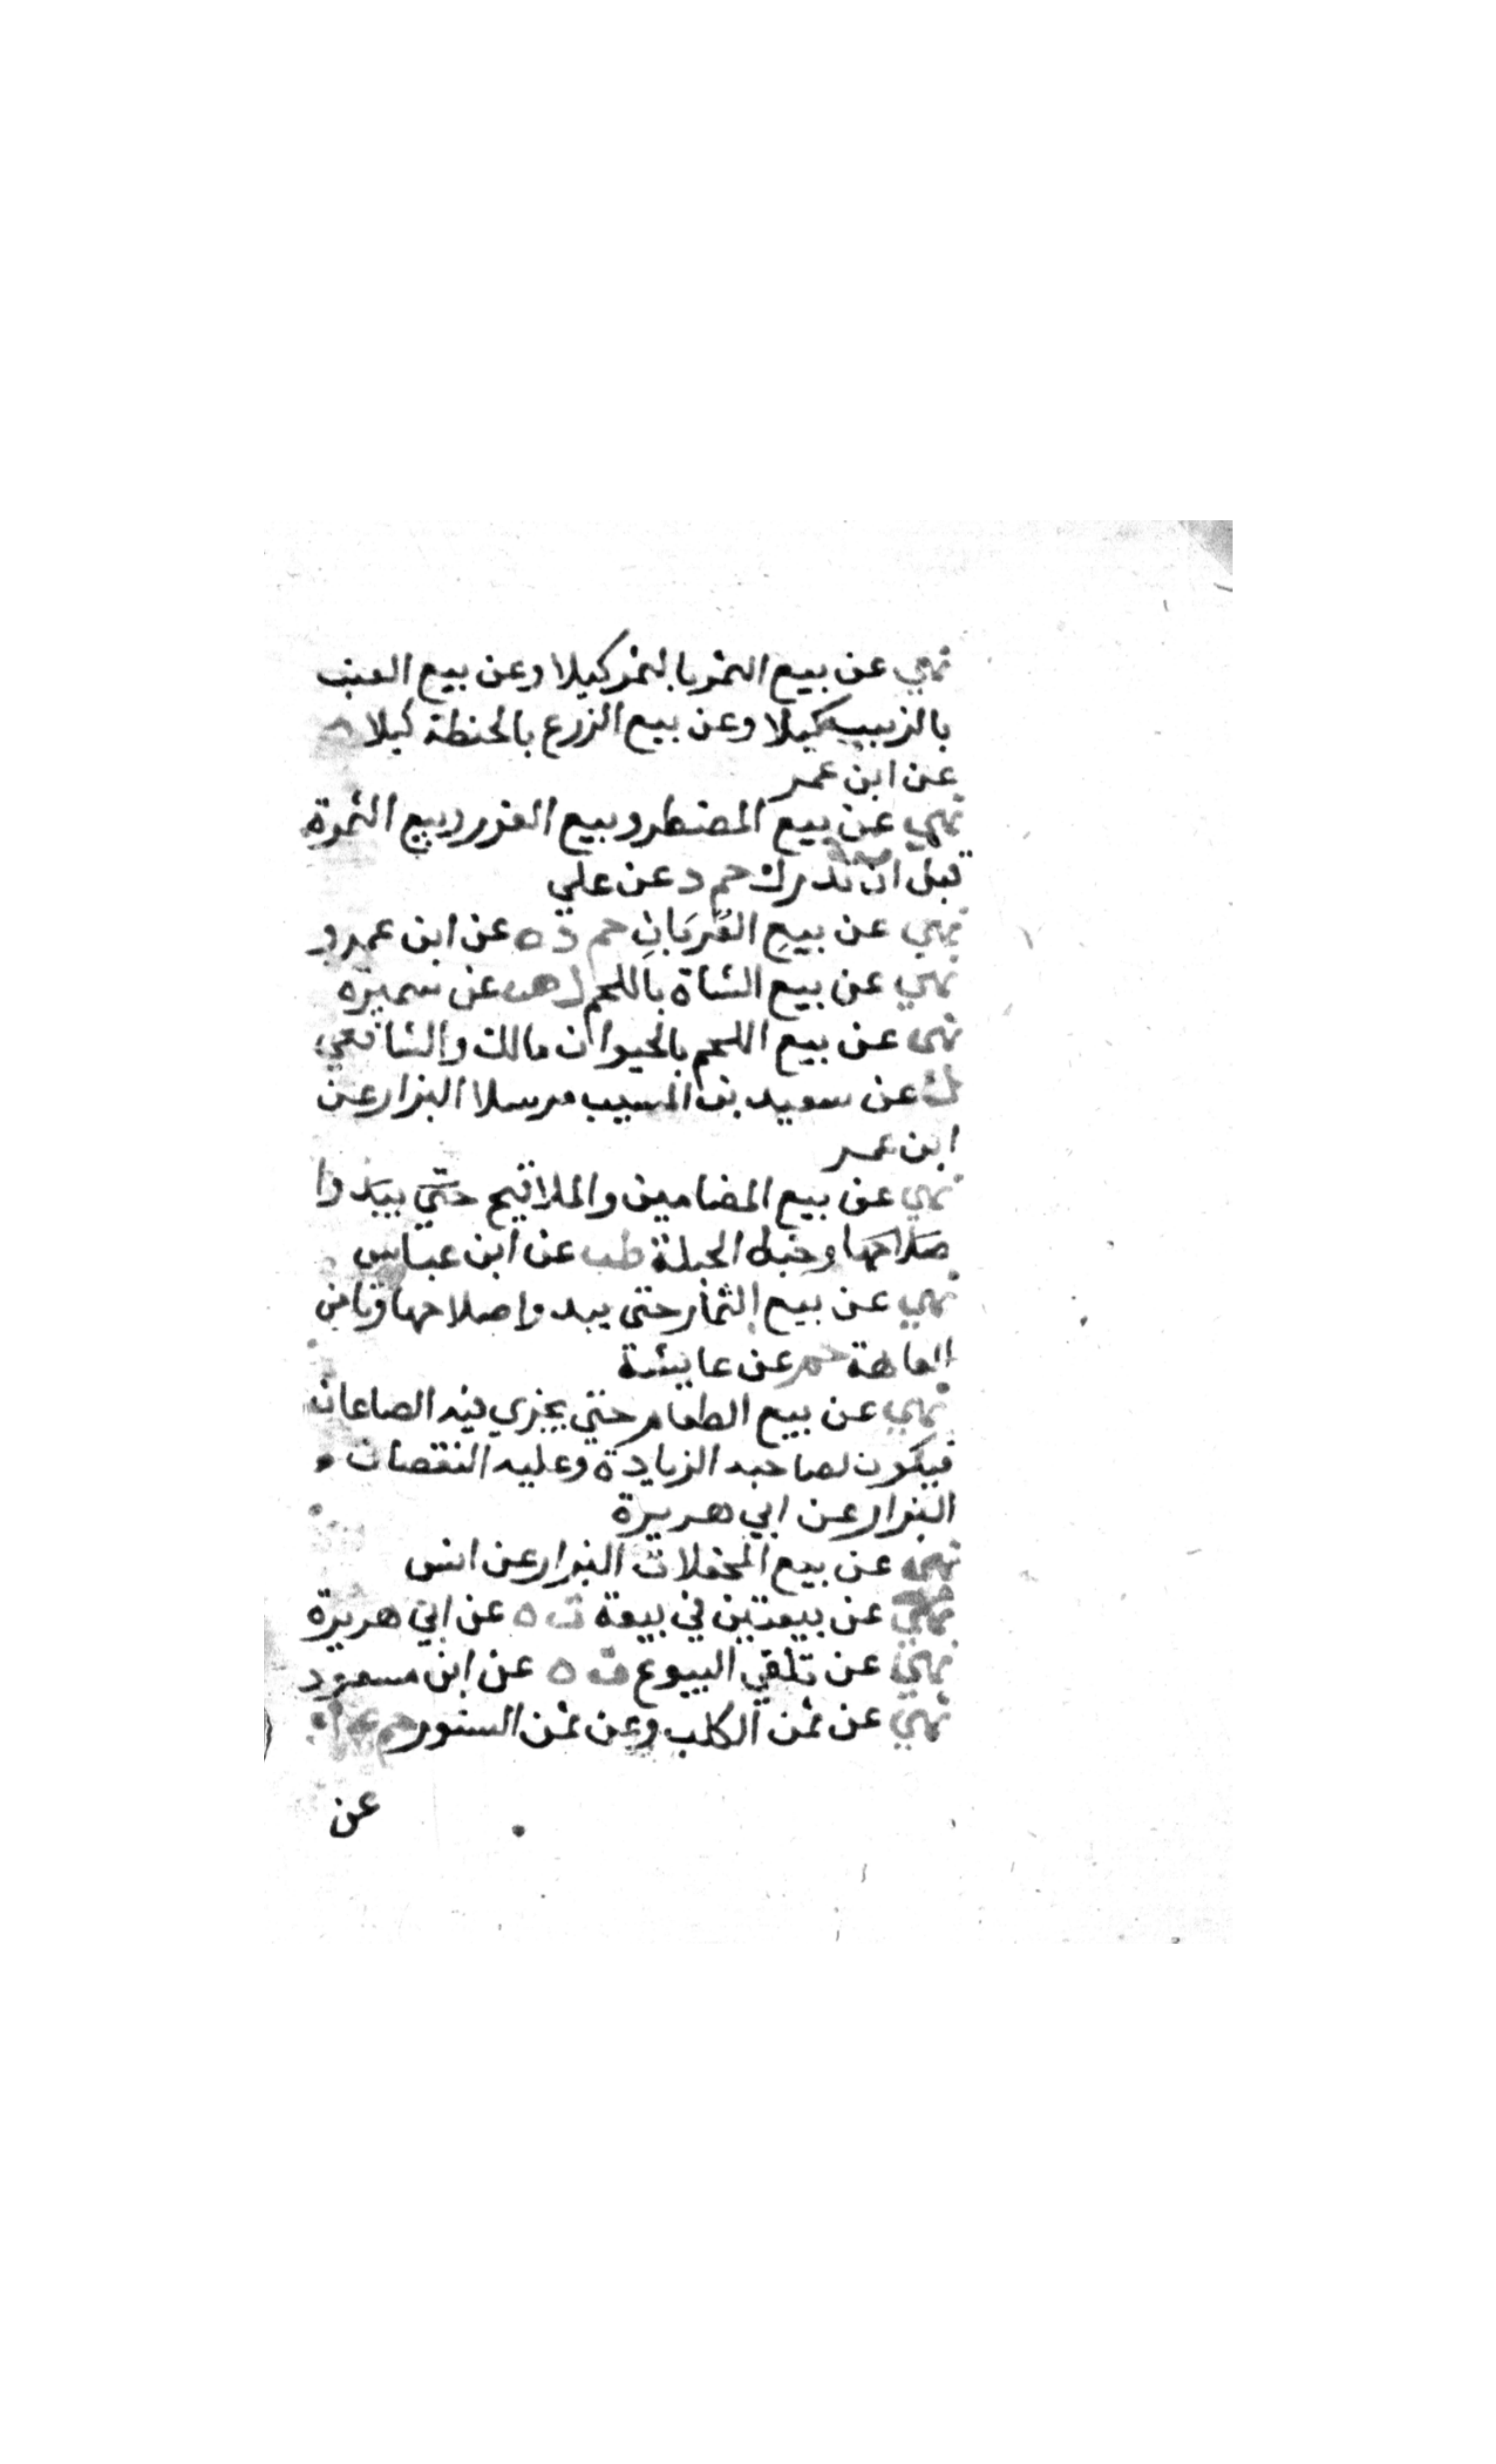 نهي عن بيع التمر بالتمر كيلا وعن بيع العنب
بالزبيب كيلا وعن بيع الزرع بالحنطة كيلا
عن ابن عمر
نهي عن بيع المضطر وبيع الغرر وبيع الثمرة
قبل ان تدرك حم د عن علي
نهي عن بيع العُرْبَانِ حم د ه عن ابن عمرو
نهي عن بيع الشاة باللحم ك هب عن سميرة
نهى عن بيع اللحم بالحيوان مالك والشافعي
ك عن سعيد بن المسيب مرسلا البزار عن
ابن عمر
نهي عن بيع المضامين والملاقيح حتي يبدوا
صلاحها وحبل الحبلة طب عن ابن عباس
نهي عن بيع الثمار حتى يبدوا صلاحها وتامن
العاهة حم عن عايشة
نهي عن بيع الطعام حتي يجزي فيه الصاعان
فيكون لصاحبه الزيادة وعليه النقصان
البزار عن ابي هريرة
نهي عن بيع المحفلات البزار عن انس
نهي عن بيعتين في بيعة ت ه عن ابي هريرة
نهي عن تلقي البيوع ت ه عن ابن مسعود
نهي عن ثمن الكلب وعن ثمن السنور حم
عن